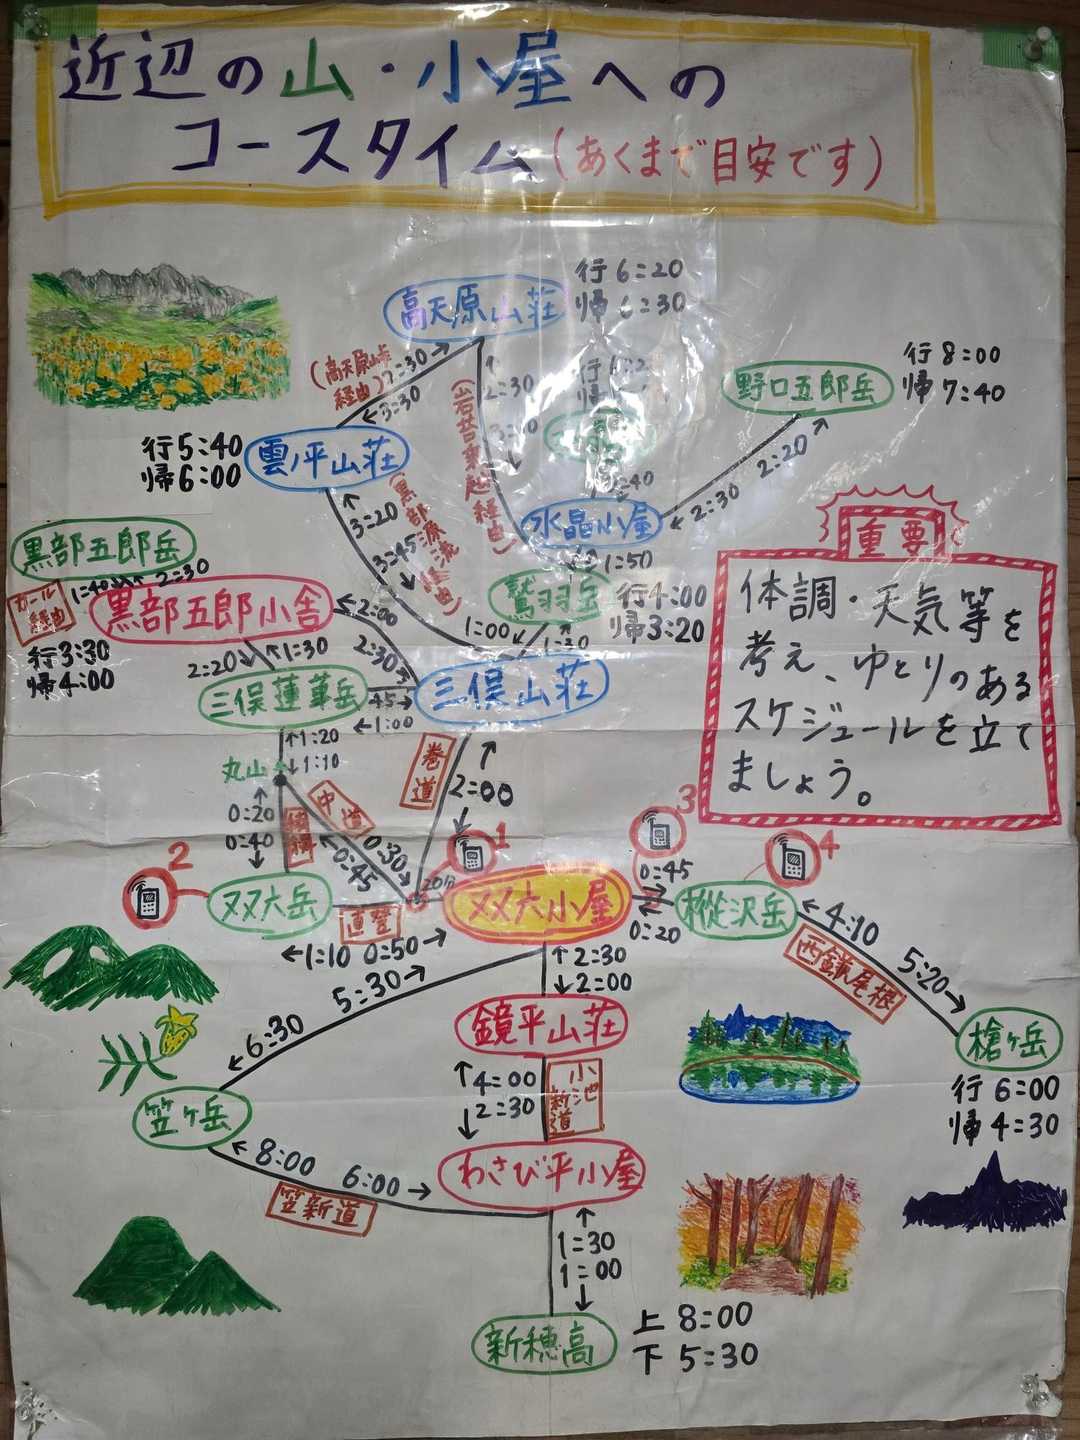 近辺の山・小屋への
コースタイム(あくまで目安です)
高天原山荘
行 6:20
帰 6:30
(高天原峠
経由)
2:30→
←3:30
(岩苔乗越経由)
↑
2:30
↓
野口五郎岳
行 8:00
帰 7:40
2:20
←2:30
雲ノ平山荘
行 5:40
帰 6:00
↑
3:20
3:45
↓
(黒部源流経由)
:40
水晶小屋
1:50
鷲羽岳
行 4:00
帰 3:20
1:00
1:30
黒部五郎岳
1:40
2:30
カール
経由
黒部五郎小舎
行 3:30
帰 4:00
←2:00
2:30
2:20
1:30
三俣蓮華岳
三俣山荘
45→
←1:00
↑1:20
↓1:10
丸山
↑
0:20
0:40
↓
中道
0:30
0:45
巻道
↑
2:00
↓
重要
体調・天気等を
考え、ゆとりのある
スケジュールを立て
ましょう。
2
双六岳
直登
←1:10 0:50→
20分
1
双六小屋
3
0:45
0:20
樅沢岳
4
←4:10
5:20→
西鎌尾根
槍ヶ岳
行 6:00
帰 4:30
5:30→
←6:30
↑2:30
↓2:00
鏡平山荘
↑4:00
↓2:30
小池
新道
笠ヶ岳
←8:00 6:00→
笠新道
わさび平小屋
↑
1:30
1:00
↓
新穂高
上 8:00
下 5:30